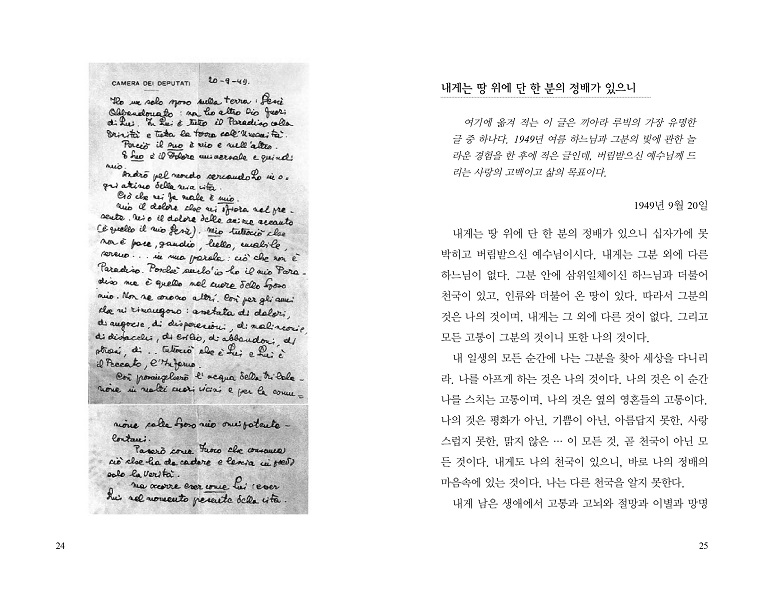 CAMERA DEI DEPUTATI 20-9-49.
Ho un solo sposo sulla terra: Gesù
Abbandonato: non ho altro Dio fuori
di Lui. In Lui è tutto il Paradiso colla
Trinità e tutta la terra coll'Umanità.
Perciò il suo è mio e null'altro.
E suo è il Dolore universale e quindi
mio.
Andrò pel mondo cercandoLo in o-
gni attimo della mia vita.
Ciò che mi fa male è mio.
Mio il dolore che mi sfiora nel pre-
sente. Mio il dolore delle anime accanto
(è quello il mio Gesù). Mio tuttociò che
non è pace, gaudio, bello, amabile,
sereno... in una parola: ciò che non è
Paradiso. Poiché anch'io ho il mio Para-
diso ma è quello nel cuore dello Sposo
mio. Non ne conosco altri. Così per gli anni
che mi rimangono: assetata di dolori,
di angosce, di disperazioni, di malinconie,
di distacchi, di esilio, di abbandoni, di
strazi, di .. tuttociò che è Lui e Lui è
il Peccato, l'Inferno.
Così prosciugherò l'acqua della tribola-
zione in molti cuori vicini e per la comu=
nione collo Sposo mio onnipotente -
lontani.
Passerò come Fuoco che consuma
ciò che ha da cadere e lascia in piedi
solo la Verità.
Ma occorre esser come Lui: esser
Lui nel momento presente della vita.
24
내게는 땅 위에 단 한 분의 정배가 있으니
여기에 옮겨 적는 이 글은 끼아라 루빅의 가장 유명한
글 중 하나다. 1949년 여름 하느님과 그분의 빛에 관한 놀
라운 경험을 한 후에 적은 글인데, 버림받으신 예수님께 드
리는 사랑의 고백이고 삶의 목표이다.
1949년 9월 20일
내게는 땅 위에 단 한 분의 정배가 있으니 십자가에 못
박히고 버림받으신 예수님이시다. 내게는 그분 외에 다른
하느님이 없다. 그분 안에 삼위일체이신 하느님과 더불어
천국이 있고, 인류와 더불어 온 땅이 있다. 따라서 그분의
것은 나의 것이며, 내게는 그 외에 다른 것이 없다. 그리고
모든 고통이 그분의 것이니 또한 나의 것이다.
내 일생의 모든 순간에 나는 그분을 찾아 세상을 다니리
라. 나를 아프게 하는 것은 나의 것이다. 나의 것은 이 순간
나를 스치는 고통이며, 나의 것은 옆의 영혼들의 고통이다.
나의 것은 평화가 아닌, 기쁨이 아닌, 아름답지 못한, 사랑
스럽지 못한, 맑지 않은 … 이 모든 것, 곧 천국이 아닌 모
든 것이다. 내게도 나의 천국이 있으니, 바로 나의 정배의
마음속에 있는 것이다. 나는 다른 천국을 알지 못한다.
내게 남은 생애에서 고통과 고뇌와 절망과 이별과 망명
25